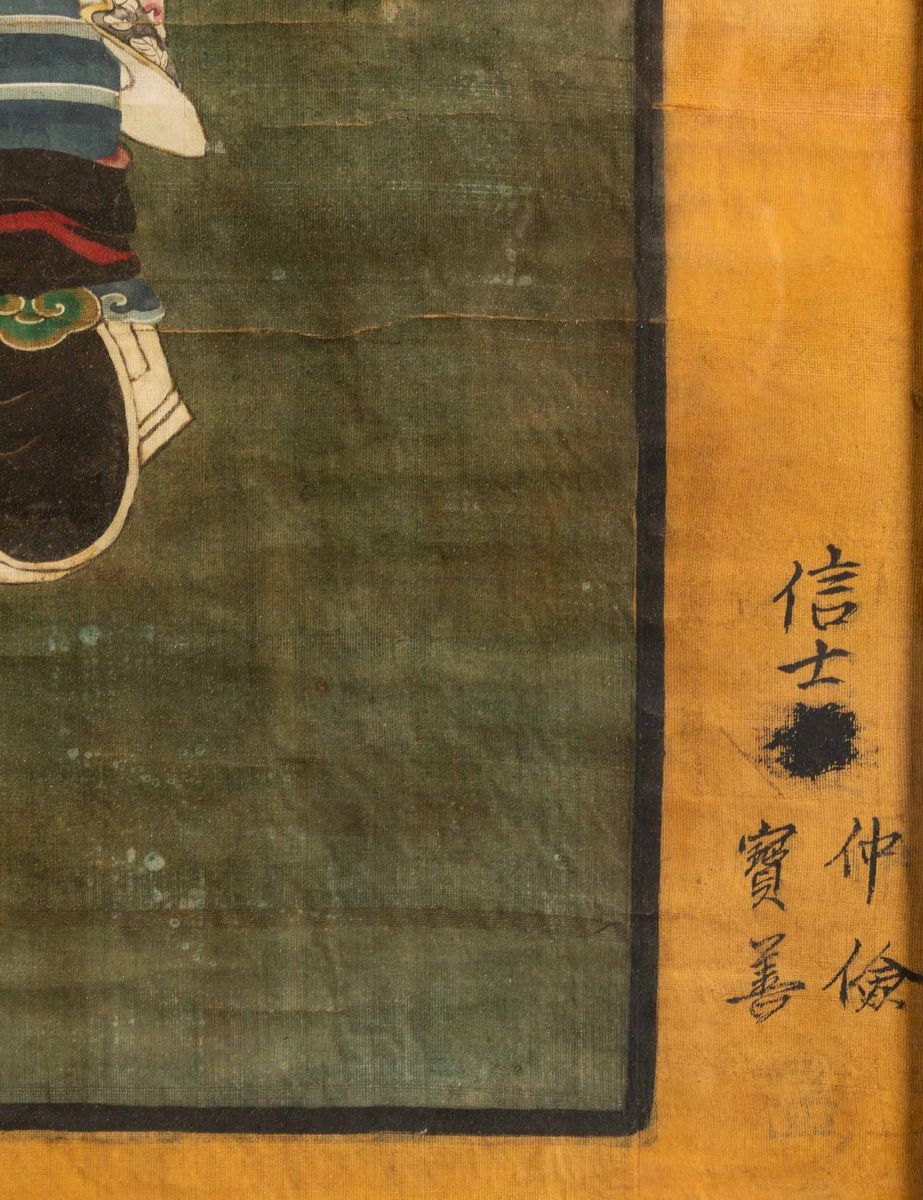 信士
仲儉
寶善